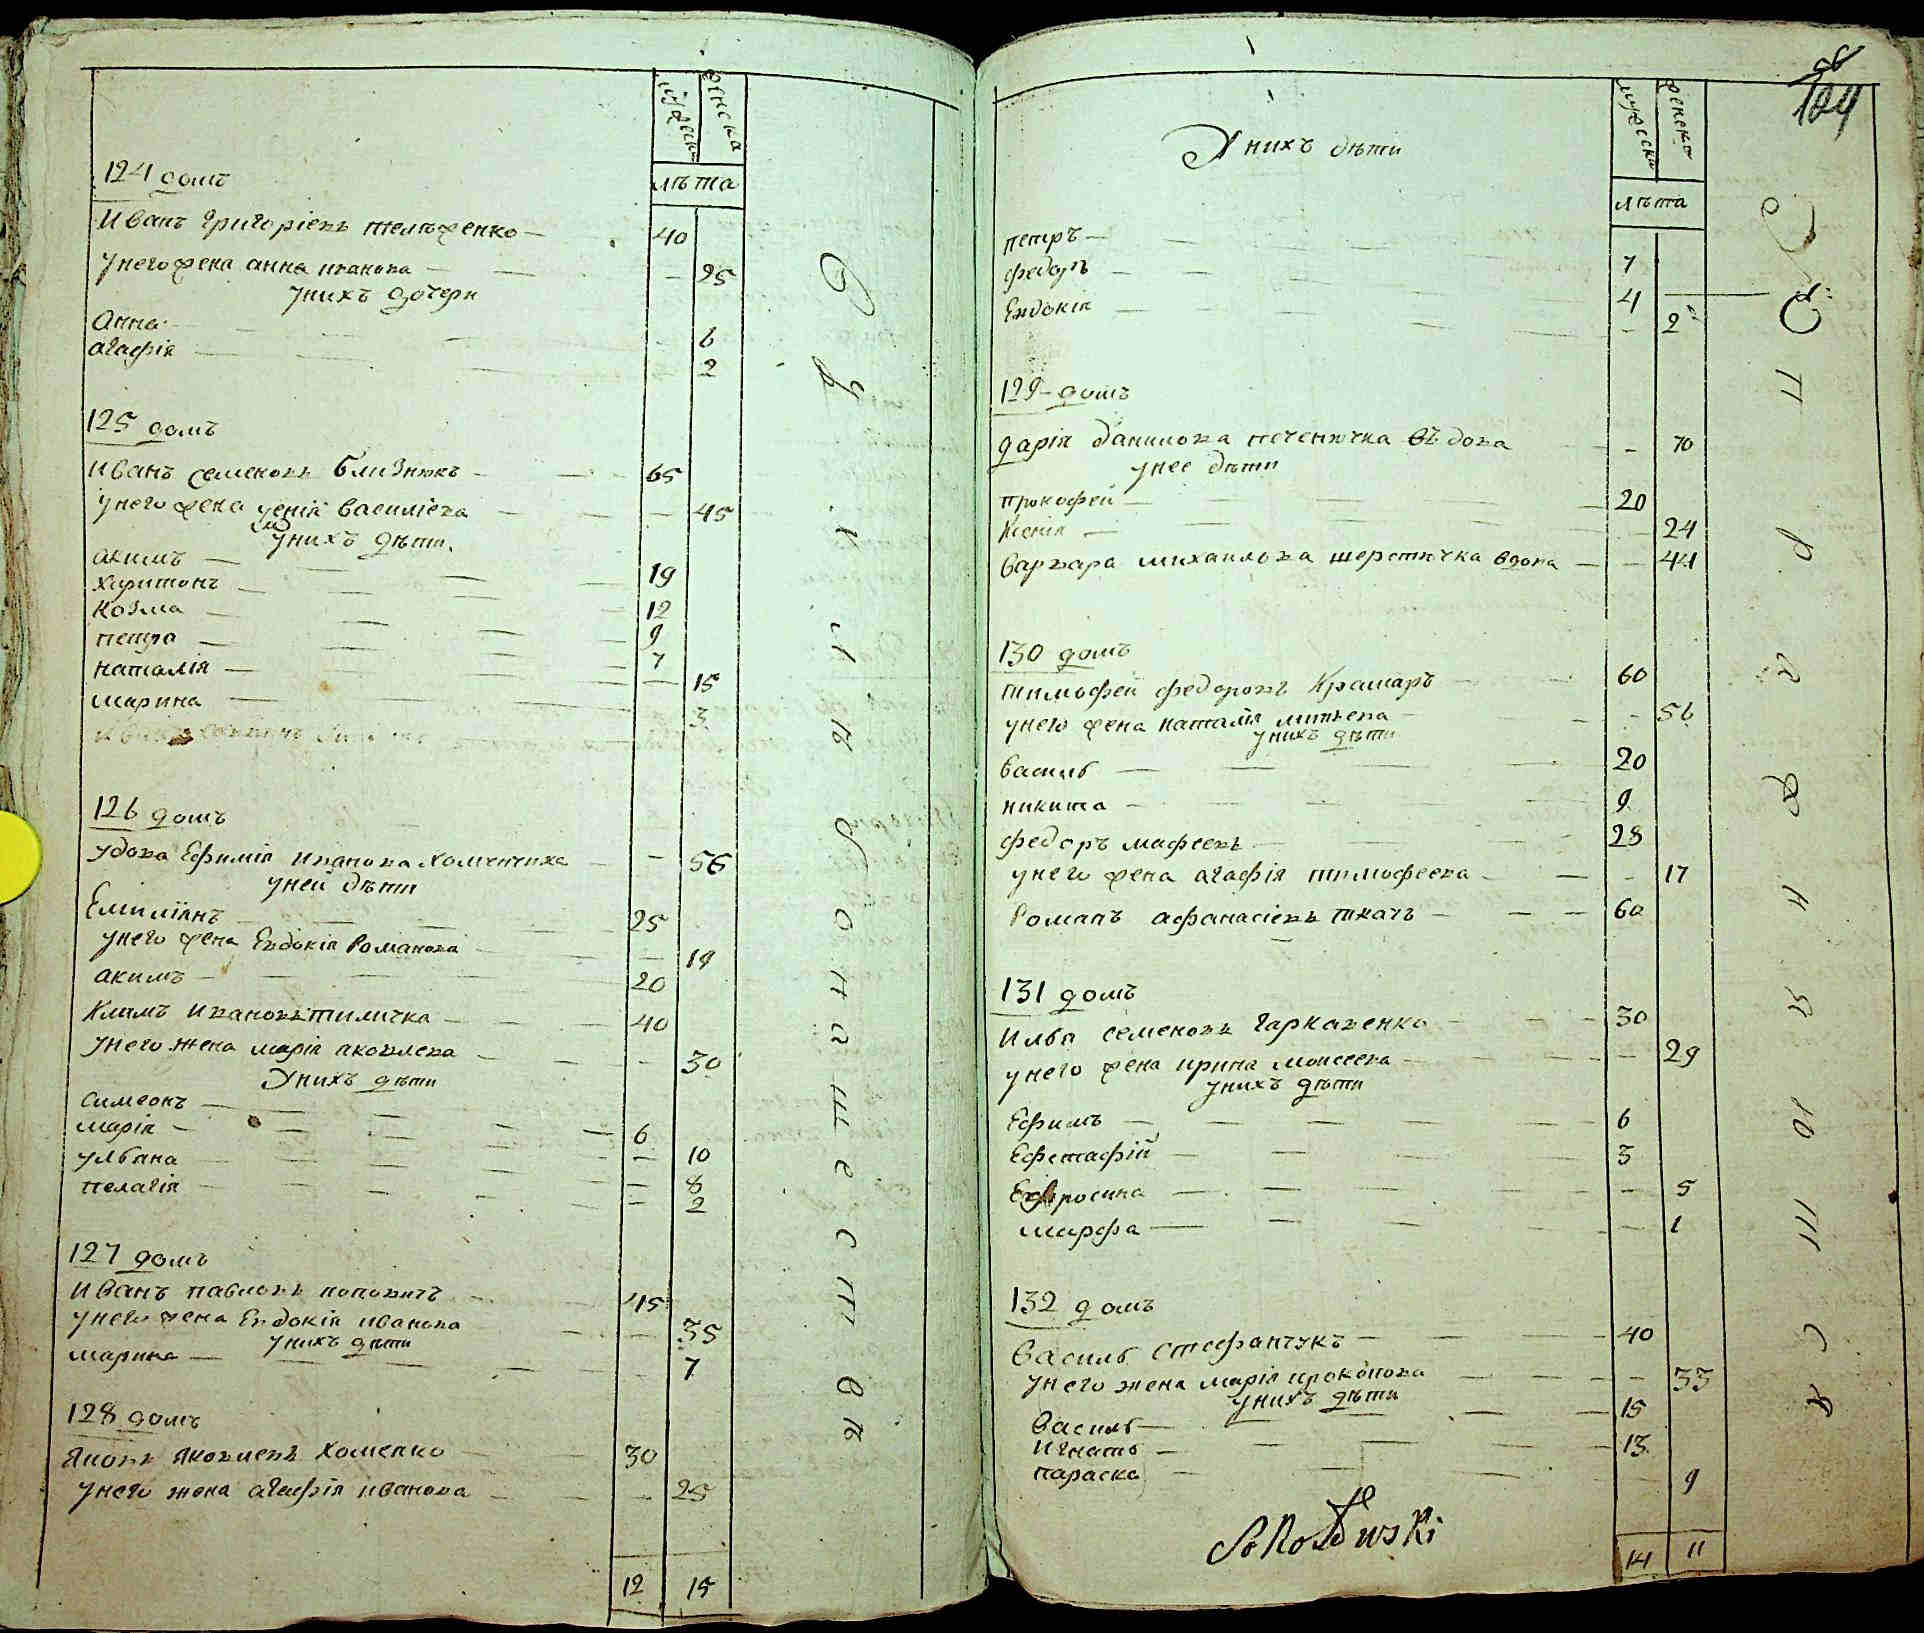 мужеска женска
лѣта
124 домъ
Иванъ Григоріевъ телѣженко 40
У него жена анна иванова 25
У нихъ дочери
Анна 6
агафія 2
125 домъ
Иванъ семеновъ близнюкъ 65
У него жена ксенія василіева 45
У нихъ дѣти
акимъ 19
харитонъ 12
козма 9
петро 7
наталія 15
марина 3
126 домъ
удова Ефимія иванова хоменчиха 56
у ней дѣти
Емиліянъ 25
у него жена Евдокія Романова 19
акимъ 20
Климъ ивановъ тиличка 40
У него жена марія яковлева 30
У нихъ дѣти
симеонъ 6
марія 10
ульяна 8
пелагія 2
127 домъ
Иванъ павловъ поповичъ 45
У него жена Евдокія иванова 35
У нихъ дѣти
марина 7
128 домъ
Яковъ яковлевъ хоменко 30
У него жена агафія иванова 25
12 15
104
мужеска женска
лѣта
У нихъ дѣти
петръ 7
федоръ 4
Евдокія 2
129 домъ
дарія данилова печенючка въдова 70
у нее дѣти
прокофей 20
Ксенія 24
варвара михаилова шерстючка вдова 44
130 домъ
тимофей федоровъ Крамаръ 60
у него жена наталія 56
у нихъ дѣти
василь 20
никита 9
федоръ мафеевъ 28
у него жена агафія тимофеева 17
Романъ афанасіевъ ткачъ 60
131 домъ
Илья семеновъ Гаркавенко 30
у него жена ирина моисеева 29
у нихъ дѣти
Ефимъ 6
Ефстафій 3
Ефросина 5
марфа 1
132 домъ
василь стефанчукъ 40
у него жена марія прокопова 33
у нихъ дѣти
василь 15
игнатъ 13
параска 9
Sokołowski
14 11